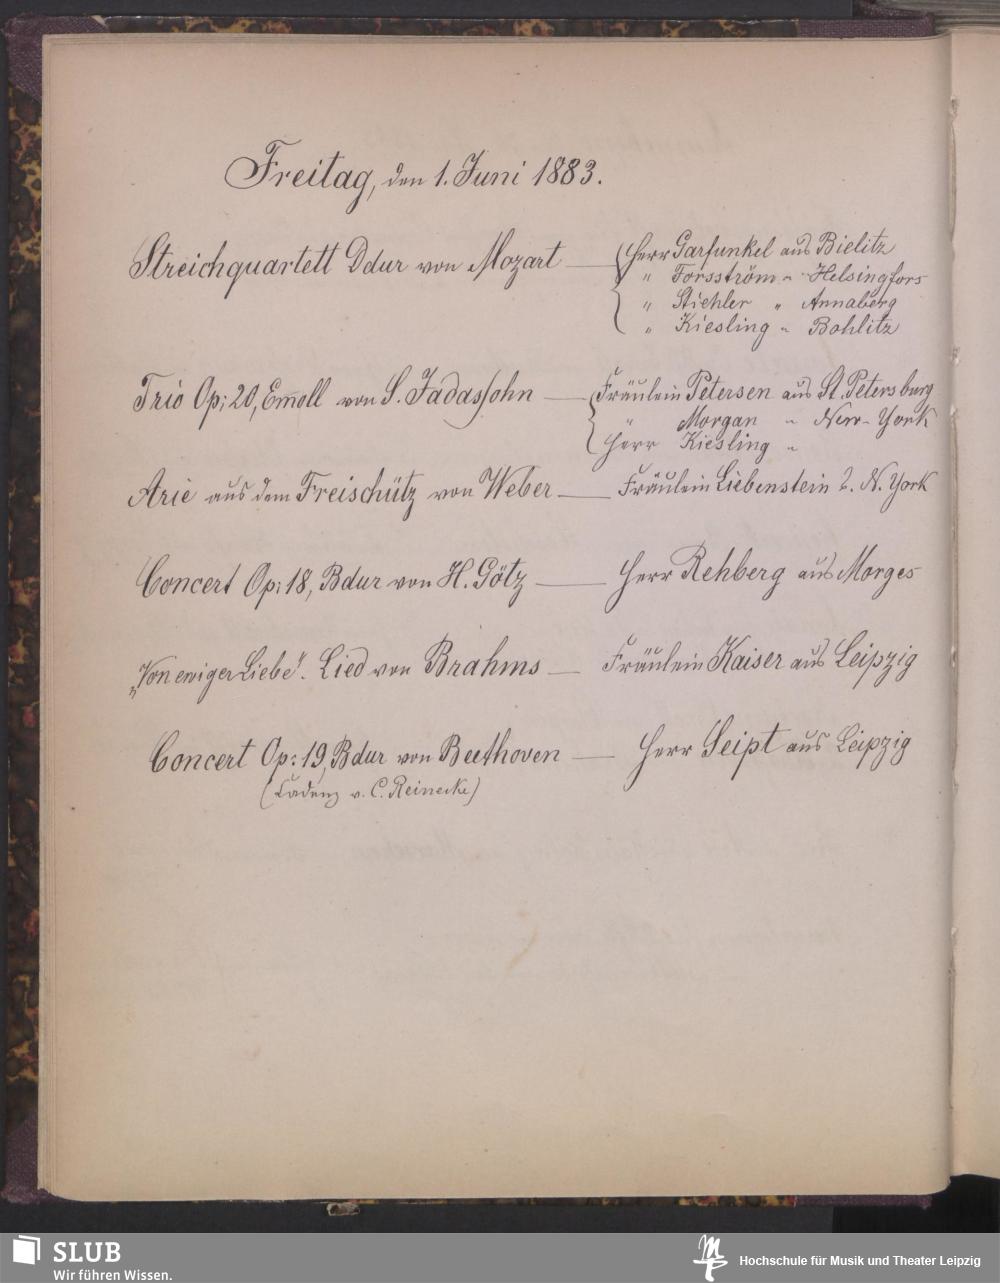 Freitag, den 1. Juni 1883.
Streichquartett Ddur von Mozart — Herr Garfunkel aus Bielitz
" Forsström " Helsingfors
" Stiehler " Annaberg
" Kiesling " Pohlitz
Trio Op: 20, Emoll von S. Jadassohn — Fräulein Petersen aus St. Petersburg
" Morgan " New-York
Herr Kiesling "
Arie aus dem Freischütz von Weber — Fräulein Liebenstein N. York
Concert Op: 18, Bdur von H. Götz — Herr Rehberg aus Morges
„Von ewiger Liebe“. Lied von Brahms — Fräulein Kaiser aus Leipzig
Concert Op: 19, Bdur von Beethoven — Herr Seipt aus Leipzig
(Cadenz v. C. Reinecke)
SLUB
Wir führen Wissen.
Hochschule für Musik und Theater Leipzig